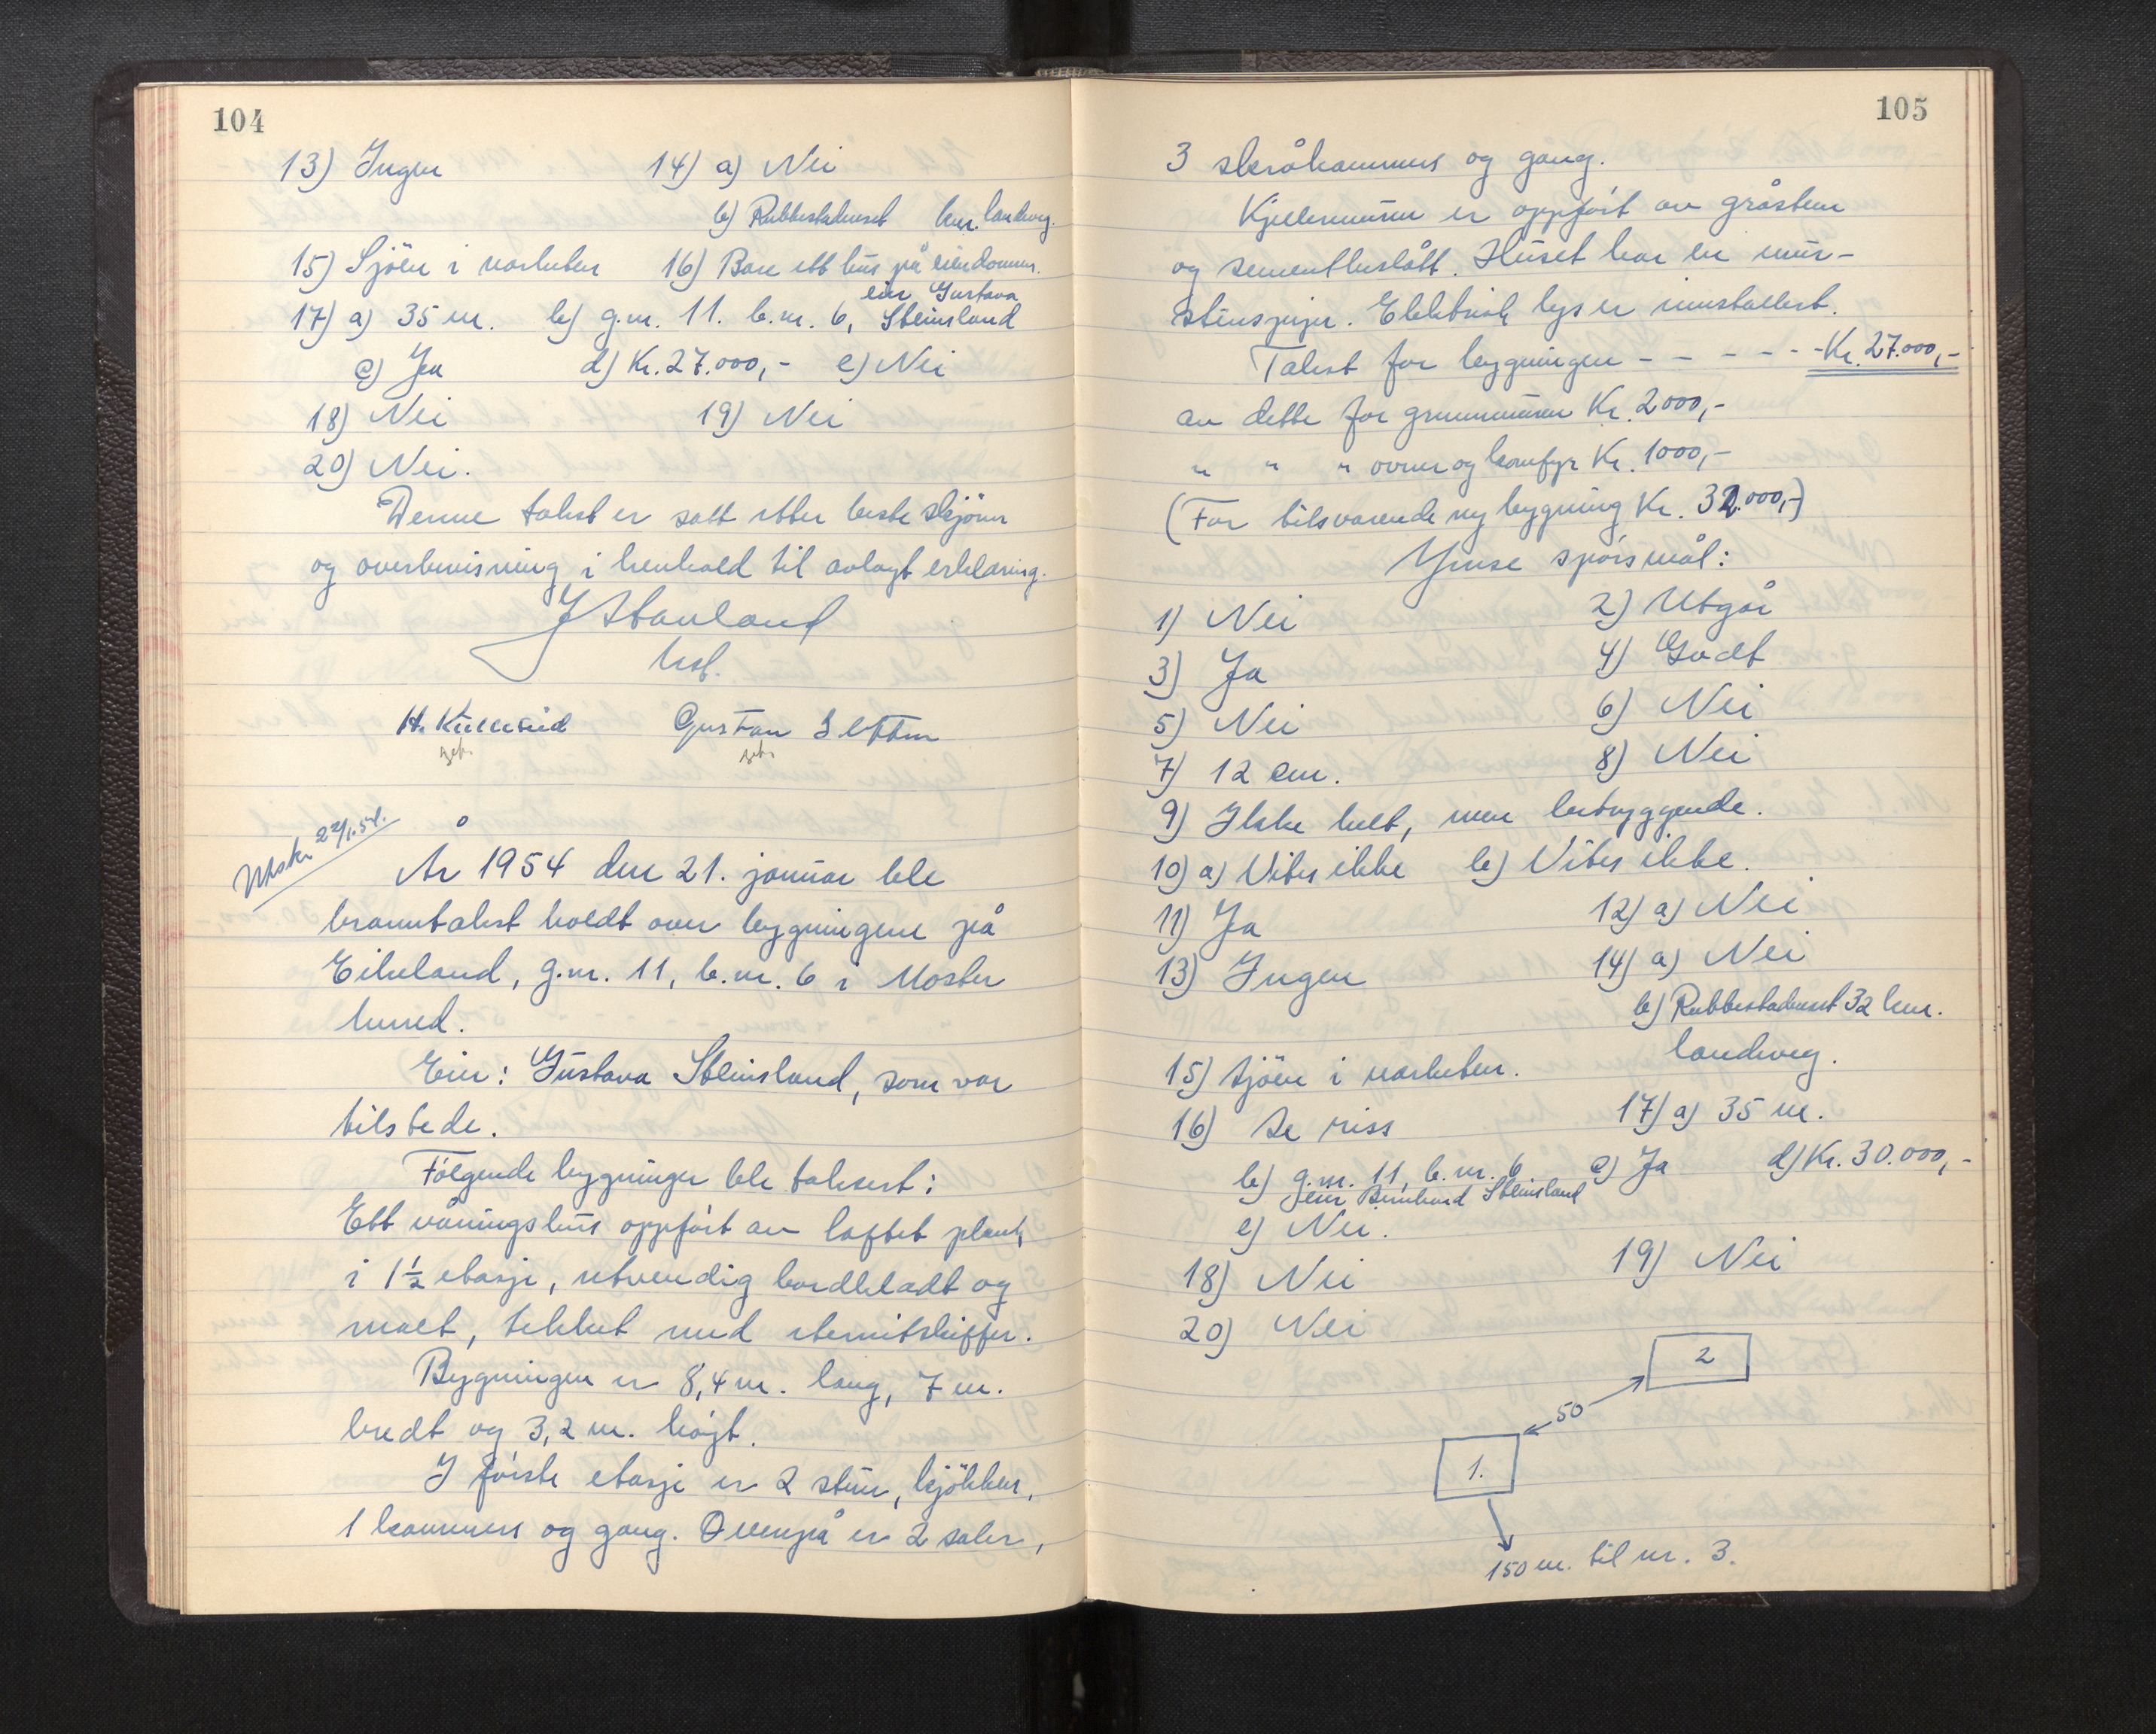 104
13) Ingen 14) a) Nei
b) Rubbestadneset km. landveg.
15) Sjöen i närheten 16) Bare ett hus på eiendommen.
17) a) 35 m. b) g.nr. 11. b.nr. 6, eier Gustava Steinsland
c) Ja d) Kr. 27.000,- e) Nei
18) Nei 19) Nei
20) Nei.
Denne takst er satt etter beste skjönn
og overbevisning i henhold til avlagt erklæring.
J Stavland
lnsf.
H. Kuleseid Gustav Sletten
Utskr. 22/1.54.
År 1954 den 21. januar ble
branntakst holdt over bygningene på
Eikeland, g.nr. 11, b.nr. 6 i Moster
herred.
Eier: Gustava Steinsland, som var
tilstede.
Følgende bygninger ble taksert:
Ett våningshus oppført av laftet plank,
i 1½ etasje, utvendig bordkledt og
malt, tekket med eternitskiffer.
Bygningen er 8,4 m. lang, 7 m.
bredt og 3,2 m. høgt.
I første etasje er 2 stuer, kjökken,
1 kammers og gang. Ovenpå er 2 saler,
105
3 skråkammers og gang.
Kjellermuren er oppført av gråsten
og sementbeslått. Huset har en mur-
stenspipe. Elektrisk lys er innstallert.
Takst for bygningen - - - - - - Kr. 27.000,-
av dette for grunnmuren Kr. 2000,-
" " " ovner og komfyr Kr. 1000,-
(For tilsvarende ny bygning Kr. 32.000,-)
Ymse spørsmål:
1) Nei 2) Utgår
3) Ja 4) Godt
5) Nei 6) Nei
7) 12 cm. 8) Nei
9) Ikke helt, men betryggende.
10) a) Vites ikke b) Vites ikke.
11) Ja 12) a) Nei
13) Ingen 14) a) Nei
b) Rubbestadneset 32 km.
landveg.
15) Sjöen i närheten.
16) Se riss 17) a) 35 m.
b) g.nr. 11, b.nr. 6 c) Ja d) Kr. 30.000,-
eier Bernhard Steinsland
e) Nei.
18) Nei 19) Nei
20) Nei
2
50
1.
150 m. til nr. 3.